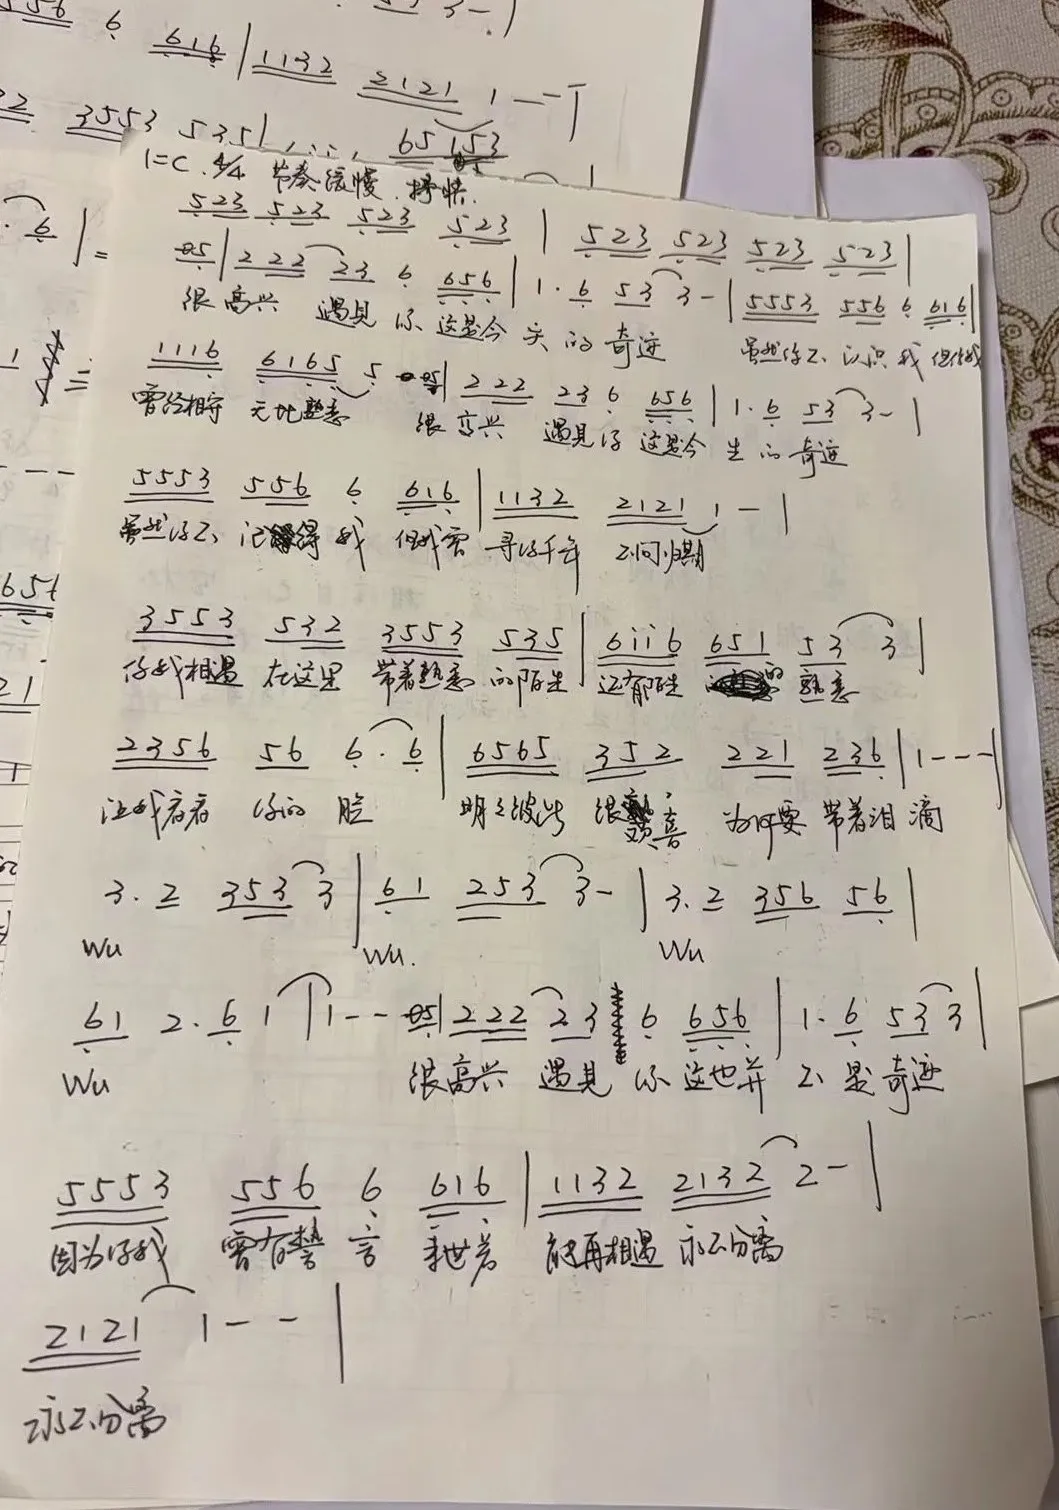 556 6 616 | 1132 2121 1 - -
3553 535 65 153
1=C. 4/4 节奏缓慢.抒情.
523 523 523 523 | 523 523 523 523 |
05 | 222 23 6 656 | 1· 6 53 3- | 5553 556 6 616 |
很高兴 遇见 你 这是今 天 的 奇迹 虽然你不 认识 我 但你我
1116 6165 5 05 | 222 23 6 656 | 1· 6 53 3- |
曾经相守 无比熟悉 很高兴 遇见 你 这是今 生 的 奇迹
5553 556 6 616 | 1132 2121 1 - |
虽然你不 记得 我 但我曾 寻你千年 不问归期
3553 532 3553 535 | 6ii6 651 53 3 |
你我相遇 在这里 带着熟悉 的陌生 还有陌生 的 熟悉
2356 56 6 · 6 | 6565 352 221 236 | 1 - - - |
让我看看 你的 脸 明明彼此 很 喜 为何要 带着泪 滴
3. 2 353 3 | 61 253 3 - | 3. 2 356 56 |
Wu Wu. Wu
61 2· 6 1 | 1 - - - 05 | 222 23 6 656 | 1· 6 53 3 |
Wu 很高兴 遇见 你 这也并 不 是 奇迹
5553 556 6 616 | 1132 2132 2 - |
因为你我 曾有誓 言 来世若 能再相遇 永不分离
2121 1 - - |
永不分离